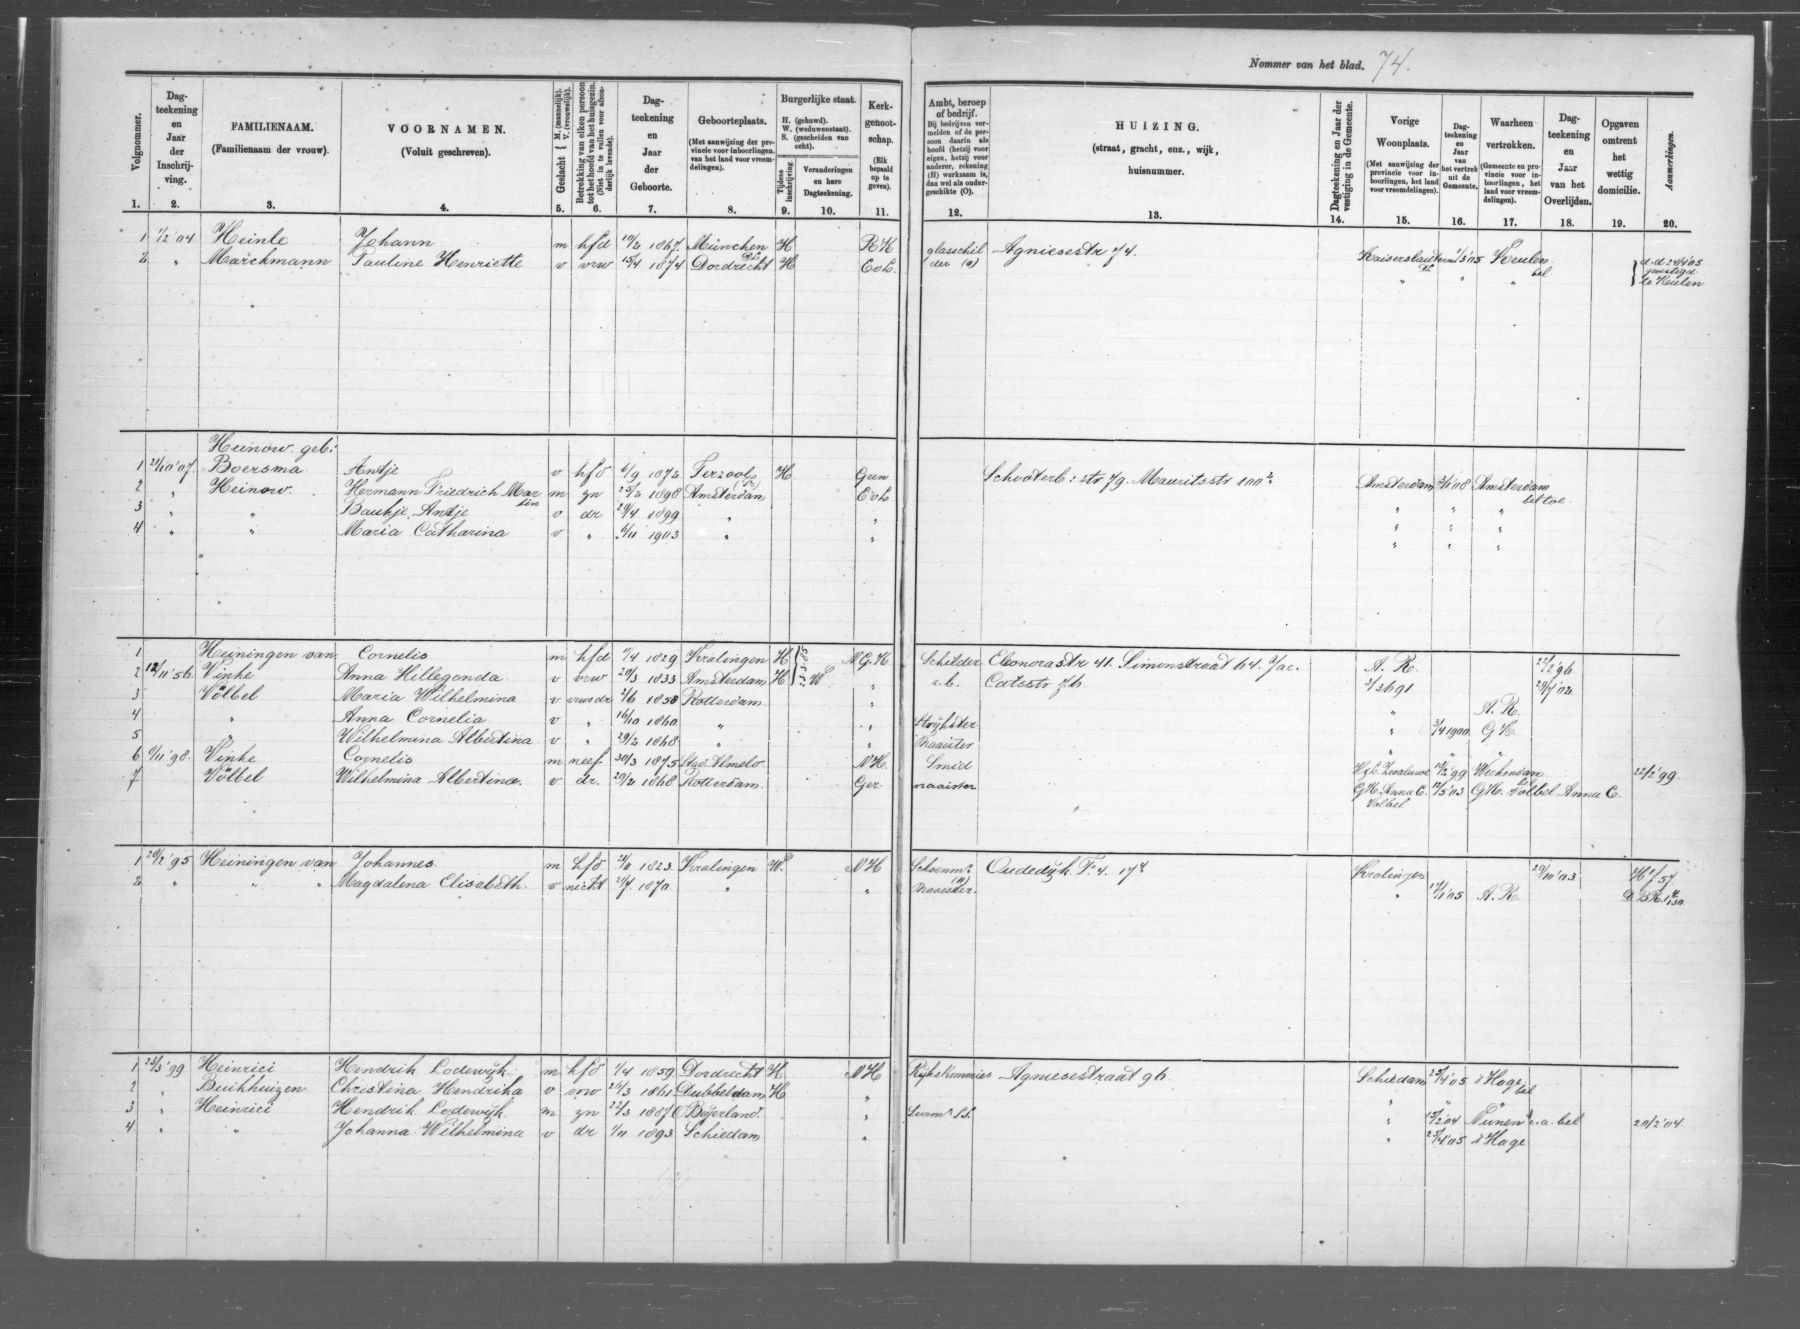 Nommer van het blad. 74.
Volgnommer. 1.
Dagteekening en Jaar der Inschrijving. 2.
FAMILIENAAM. (Familienaam der vrouw). 3.
VOORNAMEN. (Voluit geschreven). 4.
Geslacht { M. (mannelijk). V. (vrouwelijk). 5.
Betrekking van elken persoon tot het hoofd van het huisgezin. (Niet in te vullen voor afzonderlijk levende). 6.
Dagteekening en Jaar der Geboorte. 7.
Geboorteplaats. (Met aanwijzing der provincie voor inboorlingen, van het land voor vreemdelingen). 8.
Burgerlijke staat. H. (gehuwd). W. (weduwenstaat). S. (gescheiden van echt).
Tijdens inschrijving. 9.
Veranderingen en hare Dagteekening. 10.
Kerkgenootschap. (Elk bepaald op te geven). 11.
Ambt, beroep of bedrijf. Bij bedrijven vermelden of de persoon daarin als hoofd (hetzij voor eigen, hetzij voor anderer, rekening (H) werkzaam is, dan wel als ondergeschikte (O). 12.
HUIZING. (straat, gracht, enz., wijk, huisnummer. 13.
Dagteekening en Jaar der vestiging in de Gemeente. 14.
Vorige Woonplaats. (Met aanwijzing der provincie voor inboorlingen, het land voor vreemdelingen). 15.
Dagteekening en Jaar van het vertrek uit de Gemeente. 16.
Waarheen vertrokken. (Gemeente en provincie voor inboorlingen, het land voor vreemdelingen). 17.
Dagteekening en Jaar van het Overlijden. 18.
Opgaven omtrent het wettig domicilie. 19.
Aanmerkingen. 20.
1 1/2 '04 Heinle Johann m hfd 1867 München H RK glasschilder (o) Agniesestr 74. Kaiserslautern 1/5 '05 Keulen bel
2 " Marckmann Pauline Henriette v vrw 15/4 1874 Dordrecht H EvL. " " " } d.d 24/4 '05 gevestigd te Keulen
Heinow geb:
1 21/10 '07. Boersma Antje v hfd 6/9 1872 Terzool (Fr) H Geen Schooterb: str 79. Mauritsstr 100 Amsterdam 2/1 '08 Amsterdam
2 " Heinow. Hermann Friedrich Martin m zn 25/2 1898 Amsterdam EvL " " "
3 " " Baukje Antje v dr 29/4 1899 " " " " "
4 " " Maria Catharina v " 6/11 1903 " " " " "
1 Heiningen van Cornelis m hfd 1/4 1829 Kralingen H NGH Schilder Eleonorastr 41. Simonstraat 64. Jac. A. R. 22/2 96
2 12/11 '56 Vinke Anna Hillegonda v vrw 20/3 1833 Amsterdam H W " z.b. Catsstr 76 29/7 '02
3 Völbel Maria Wilhelmina v vrws dr 2/6 1858 Rotterdam " " A. R.
4 " Anna Cornelia v " 16/10 1860 " " Strijkster " 3/4 1900 G.K.
5 " Wilhelmina Albertina v " 29/2 1868 " " Naaister " " "
6 9/11 '98 Vinke Cornelis m neef 30/3 1875 Stad Almelo NH. Smid H. & L. Zwaluwe 10/2 '99 Werkendam 22/2 '99
7 Völbel Wilhelmina Albertina v dr. 29/2 1868 Rotterdam Ger. naaister GK. Anna C. Völbel 12/5 '03 GK. Völbel Anna C.
1 20/2 '95 Heiningen van Johannes m hfd 1823 Kralingen W. NH Schoenmr (H) Oudedijk F. 4. 17 Kralingen 29/10 '03
2 " " " Magdalena Elisabeth v nicht 21/7 1870 " " Naaister. " 17/1 '05 A. R.
1 23/5 '99 Heinrici Hendrik Lodewijk m hfd 1/4 1859 Dordrecht H NH Rijkskommies Agniesestraat 96. Schiedam 25/4 '05 's Hage bel
2 " Buikhuizen Christina Hendrika v vrw 24/3 1861 Dubbeldam H " " " "
3 " Heinrici Hendrik Lodewijk. m zn 22/3 1887 O Beijerland. " " 15/2 '04 Nunen c.a. bel 20/2 '04
4 " " Johanna Wilhelmina v dr 1/11 1893 Schiedam " " 25/4 '05 's Hage